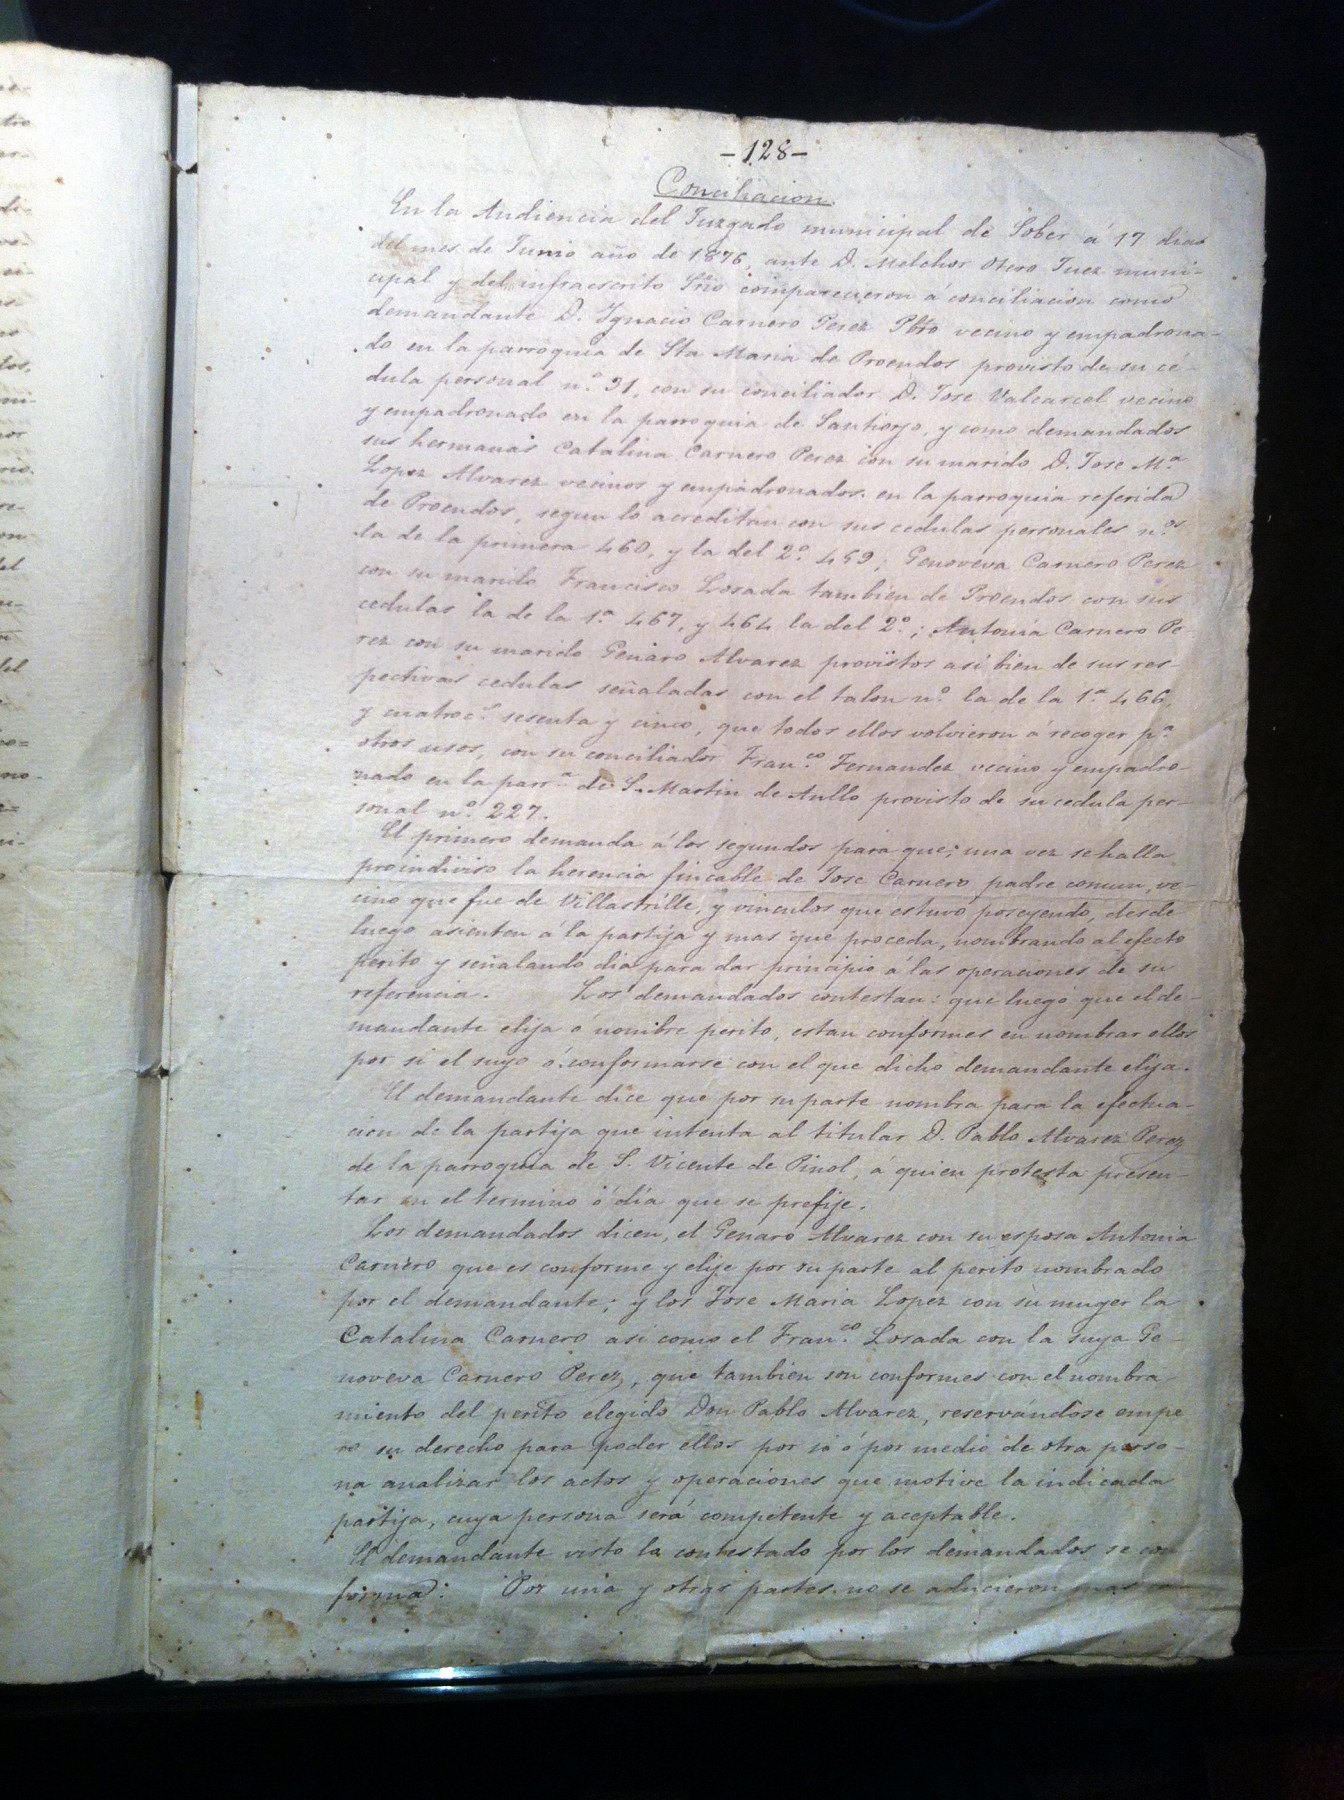 -128-
Conciliacion.
En la Audiencia del Juzgado municipal de Sober á 17 dias
del mes de Junio año de 1876, ante D. Melchor Otero Juez muni-
cipal y del infraescrito Srio comparecieron á conciliacion como
demandante D. Ygnacio Carnero Perez Pbro vecino y empadrona-
do en la parroquia de Sta Maria de Proendos provisto de su cé-
dula personal n.º 31, con su conciliador D. Jose Valcarcel vecino
y empadronado en la parroquia de Santiorjo, y como demandados
sus hermanas Catalina Carnero Perez con su marido D. Jose M.ª
Lopez Alvarez vecinos y empadronados en la parroquia referida
de Proendos, segun lo acreditan con sus cedulas personales n.os
la de la primera 460, y la del 2.º 459; Genoveva Carnero Perez
con su marido Francisco Losada tambien de Proendos con sus
cedulas la de la 1.ª 467, y 464 la del 2.º; Antonia Carnero Pe-
rez con su marido Genaro Alvarez provistos asi bien de sus res-
pectivas cedulas señaladas con el talon n.º la de la 1.ª 466,
y cuatroc.s sesenta y cinco, que todos ellos volvieron á recoger p.ª
otros usos, con su conciliador Fran.co Fernandez vecino y empadro-
nado en la parr.ª de S. Martin de Anllo provisto de su cedula per-
sonal n.º 227.
El primero demanda á los segundos para que; una vez se halla
proindiviso la herencia fincable de Jose Carnero padre comun, ve-
cino que fue de Villastrille, y vinculos que estuvo poseyendo, desde
luego asienten á la partija y mas que proceda, nombrando al efecto
perito y señalando dia para dar principio á las operaciones de su
referencia. Los demandados contestan: que luego que el de-
mandante elija ó nombre perito, estan conformes en nombrar ellos
por si el suyo ó conformarse con el que dicho demandante elija.
El demandante dice que por su parte nombra para la efectua-
cion de la partija que intenta al titular D. Pablo Alvarez Perez
de la parroquia de S. Vicente de Pinol, á quien protesta presen-
tar en el termino ó dia que se prefije.
Los demandados dicen, el Genaro Alvarez con su esposa Antonia
Carnero que es conforme y elije por su parte al perito nombrado
por el demandante; y los Jose Maria Lopez con su muger la
Catalina Carnero asi como el Fran.co Losada con la suya Ge-
noveva Carnero Perez, que tambien son conformes con el nombra-
miento del perito elegido Don Pablo Alvarez, reservandose empe
ro su derecho para poder ellos por si ó por medio de otra perso-
na analizar los actos y operaciones que motive la indicada
partija, cuya persona será competente y aceptable.
El demandante visto lo contestado por los demandados se con
forma: Por una y otras partes no se aducieron mas